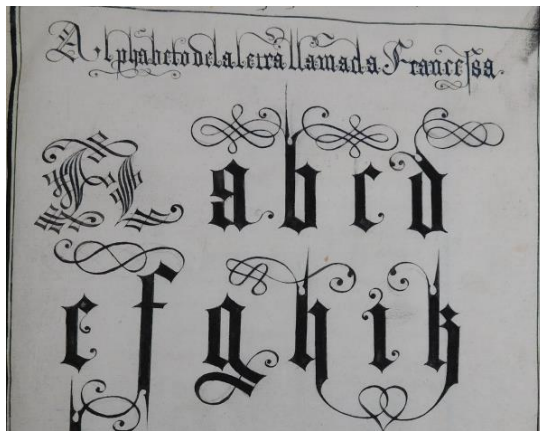 Alphabeto de la letra llamada Francessa.
A a b c d
e f g h i k